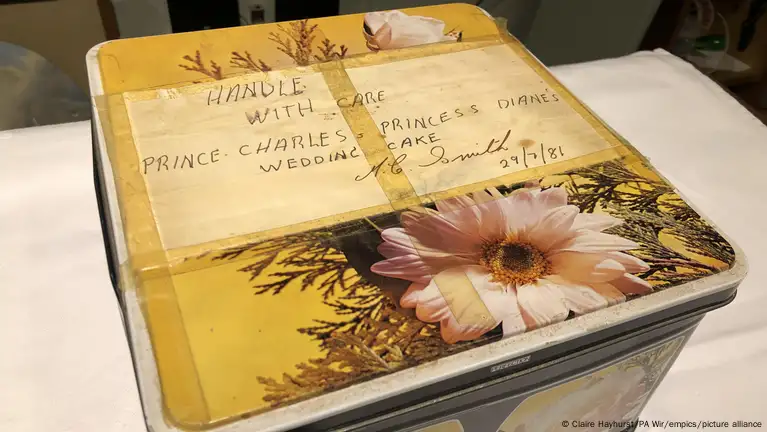 HANDLE
WITH CARE
PRINCE. CHARLES & PRINCESS DIANE'S
WEDDING CAKE
M.C. Smith 29/7/81
© Claire Hayhurst/PA Wir/empics/picture alliance